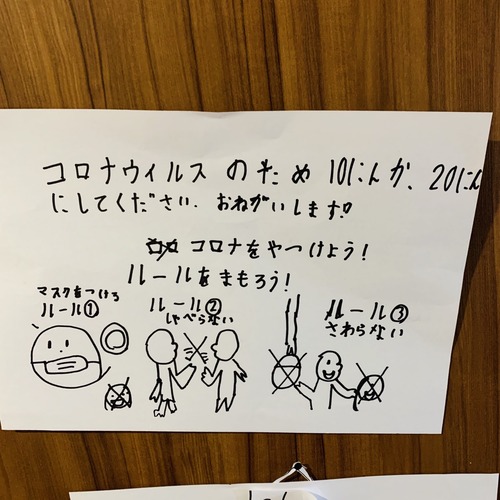 コロナウィルスのため10にんか、20にん
にしてください。おねがいします!!
コロナをやっつけよう!
ルールをまもろう!
マスクをつける
ルール①
ルール②
しゃべらない
ルール③
さわらない